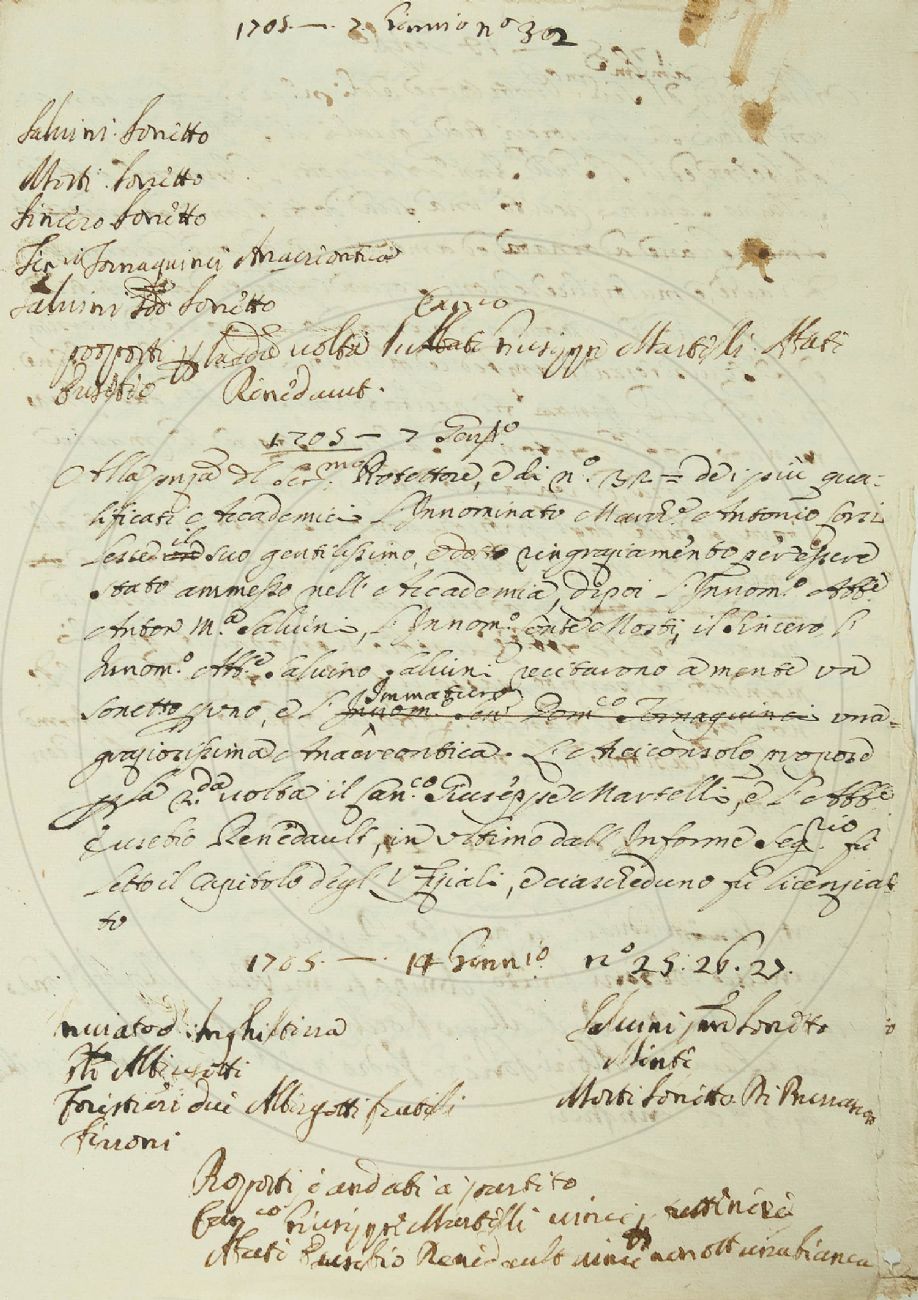 1705. — . 7 Gennio nº 302
Salvini Sonetto
Morti Sonetto
Sincero Sonetto
Tornaquinci Anacreontica
Salvini Sdo Sonetto
Canco
proposti p la 2da volta Giuseppe Martelli Abate
Eusebio Renedaut.
1705 — 7 Genro
Alla pnza del Sermo Protettore, e di nº 32 = de i più qua-
lificati Accademici L'Innominato Marche Antonio Corsi
lesse il suo gentilissimo, e dotto ringraziamento per essere
stato ammesso nell'Accademia, dipoi L'Innomo Abbe
Anton Ma Salvini, L'Innomo Conte Morti, il Sincero, l'
Innomo Abbe Salvino Salvini recitarono a mente un
Sonetto p uno, e L' Immaturo Innomo Sen Domco Tornaquinci una
graziosissima Anacreontica. L'Arciconsolo propose
p la 2da volta il Canco Giuseppe Martelli, e L'Abbe
Eusebio Renedault, in ultimo dall'Informe Segrio fu
Letto il Capitolo degl'Ufiziali, e ciascheduno fu licenzia-
to
1705. — . 14 Gennio nº 25. 26. 27.
Inghilterra
Albergotti
Forestieri due Albergotti fratelli
Salvini pmo Sonetto
Mente
Morti Sonetto
Proposti e andati a partito
Canco Giuseppe Martelli vince
Abate Eusebio Renedault vince